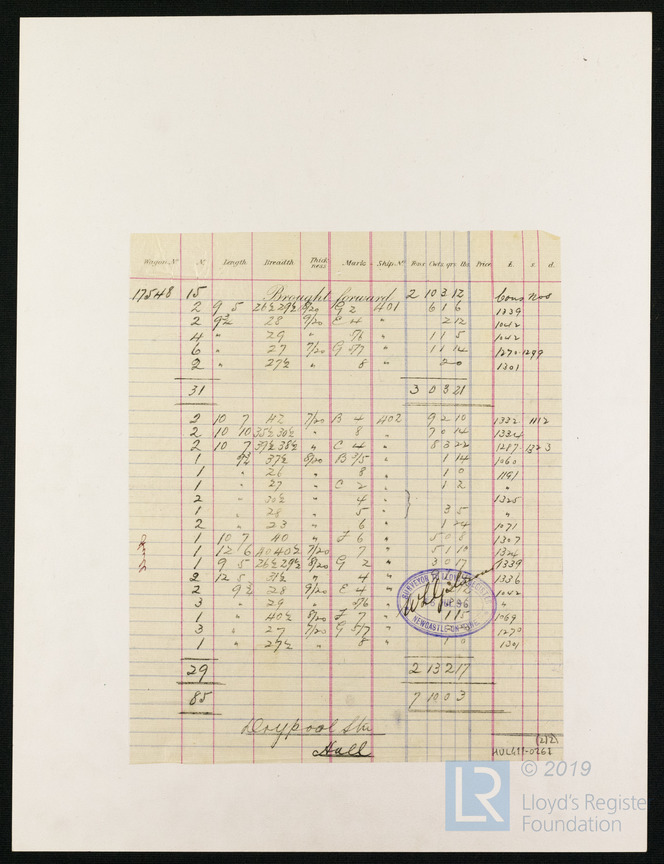 Wagon Nº Nº Length Breadth Thickness Marks Ship Nº Tons Cwts. qrs. lbs. Price £. s. d.
17548 15 Brought forward 2 10 3 12 Cons Nos
2 9 5 26½ 29½ 8/20 G 2 401 6 1 6 1339
2 9¾ 28 9/20 E 4 " 2 12 1042
4 " 29 " 5/6 " 1 1 5 1042
6 " 27 7/20 G 5/7 " 1 1 14 1270-1299
2 " 27½ " 8 " 2 0 1301
31 3 0 3 21
2 10 7 42 7/20 B 4 402 9 2 10 1332 1112
2 10 10 35½ 36½ " 8 " 7 0 14 1334
2 10 7 37½ 38½ " C 4 " 8 3 22 1287 1323
1 9¾ 37½ 8/20 B 3/5 " 1 14 1060
1 " 26 " 8 " 1 0 1191
1 " 27 " C 2 " 1 2 "
2 " 30½ " 4 " 1325
1 " 28 " 5 " 3 5 "
2 " 23 " 6 " 1 24 1071
1 10 7 40 " F 6 " 5 0 8 1307
1 12 6 40 40½ 7/20 7 " 5 1 10 1324
1 9 5 26½ 29½ 8/20 G 2 " 3 0 17 1339
2 12 5 31½ " 4 " 1336
2 9¾ 28 9/20 E 4 " 1042
3 " 29 " 5/6 " "
1 " 40½ 8/20 F 7 " 1 15 1069
3 " 27 7/20 G 5/7 " 1270
1 " 27½ " 8 " 1 0 1301
SURVEYOR
96
NEWCASTLE-ON-TYNE
29 2 13 2 17
85 7 10 0 3
Drypool Stn
Hull
(2/2)
HUL611-0261
LR
© 2019
Lloyd's Register
Foundation